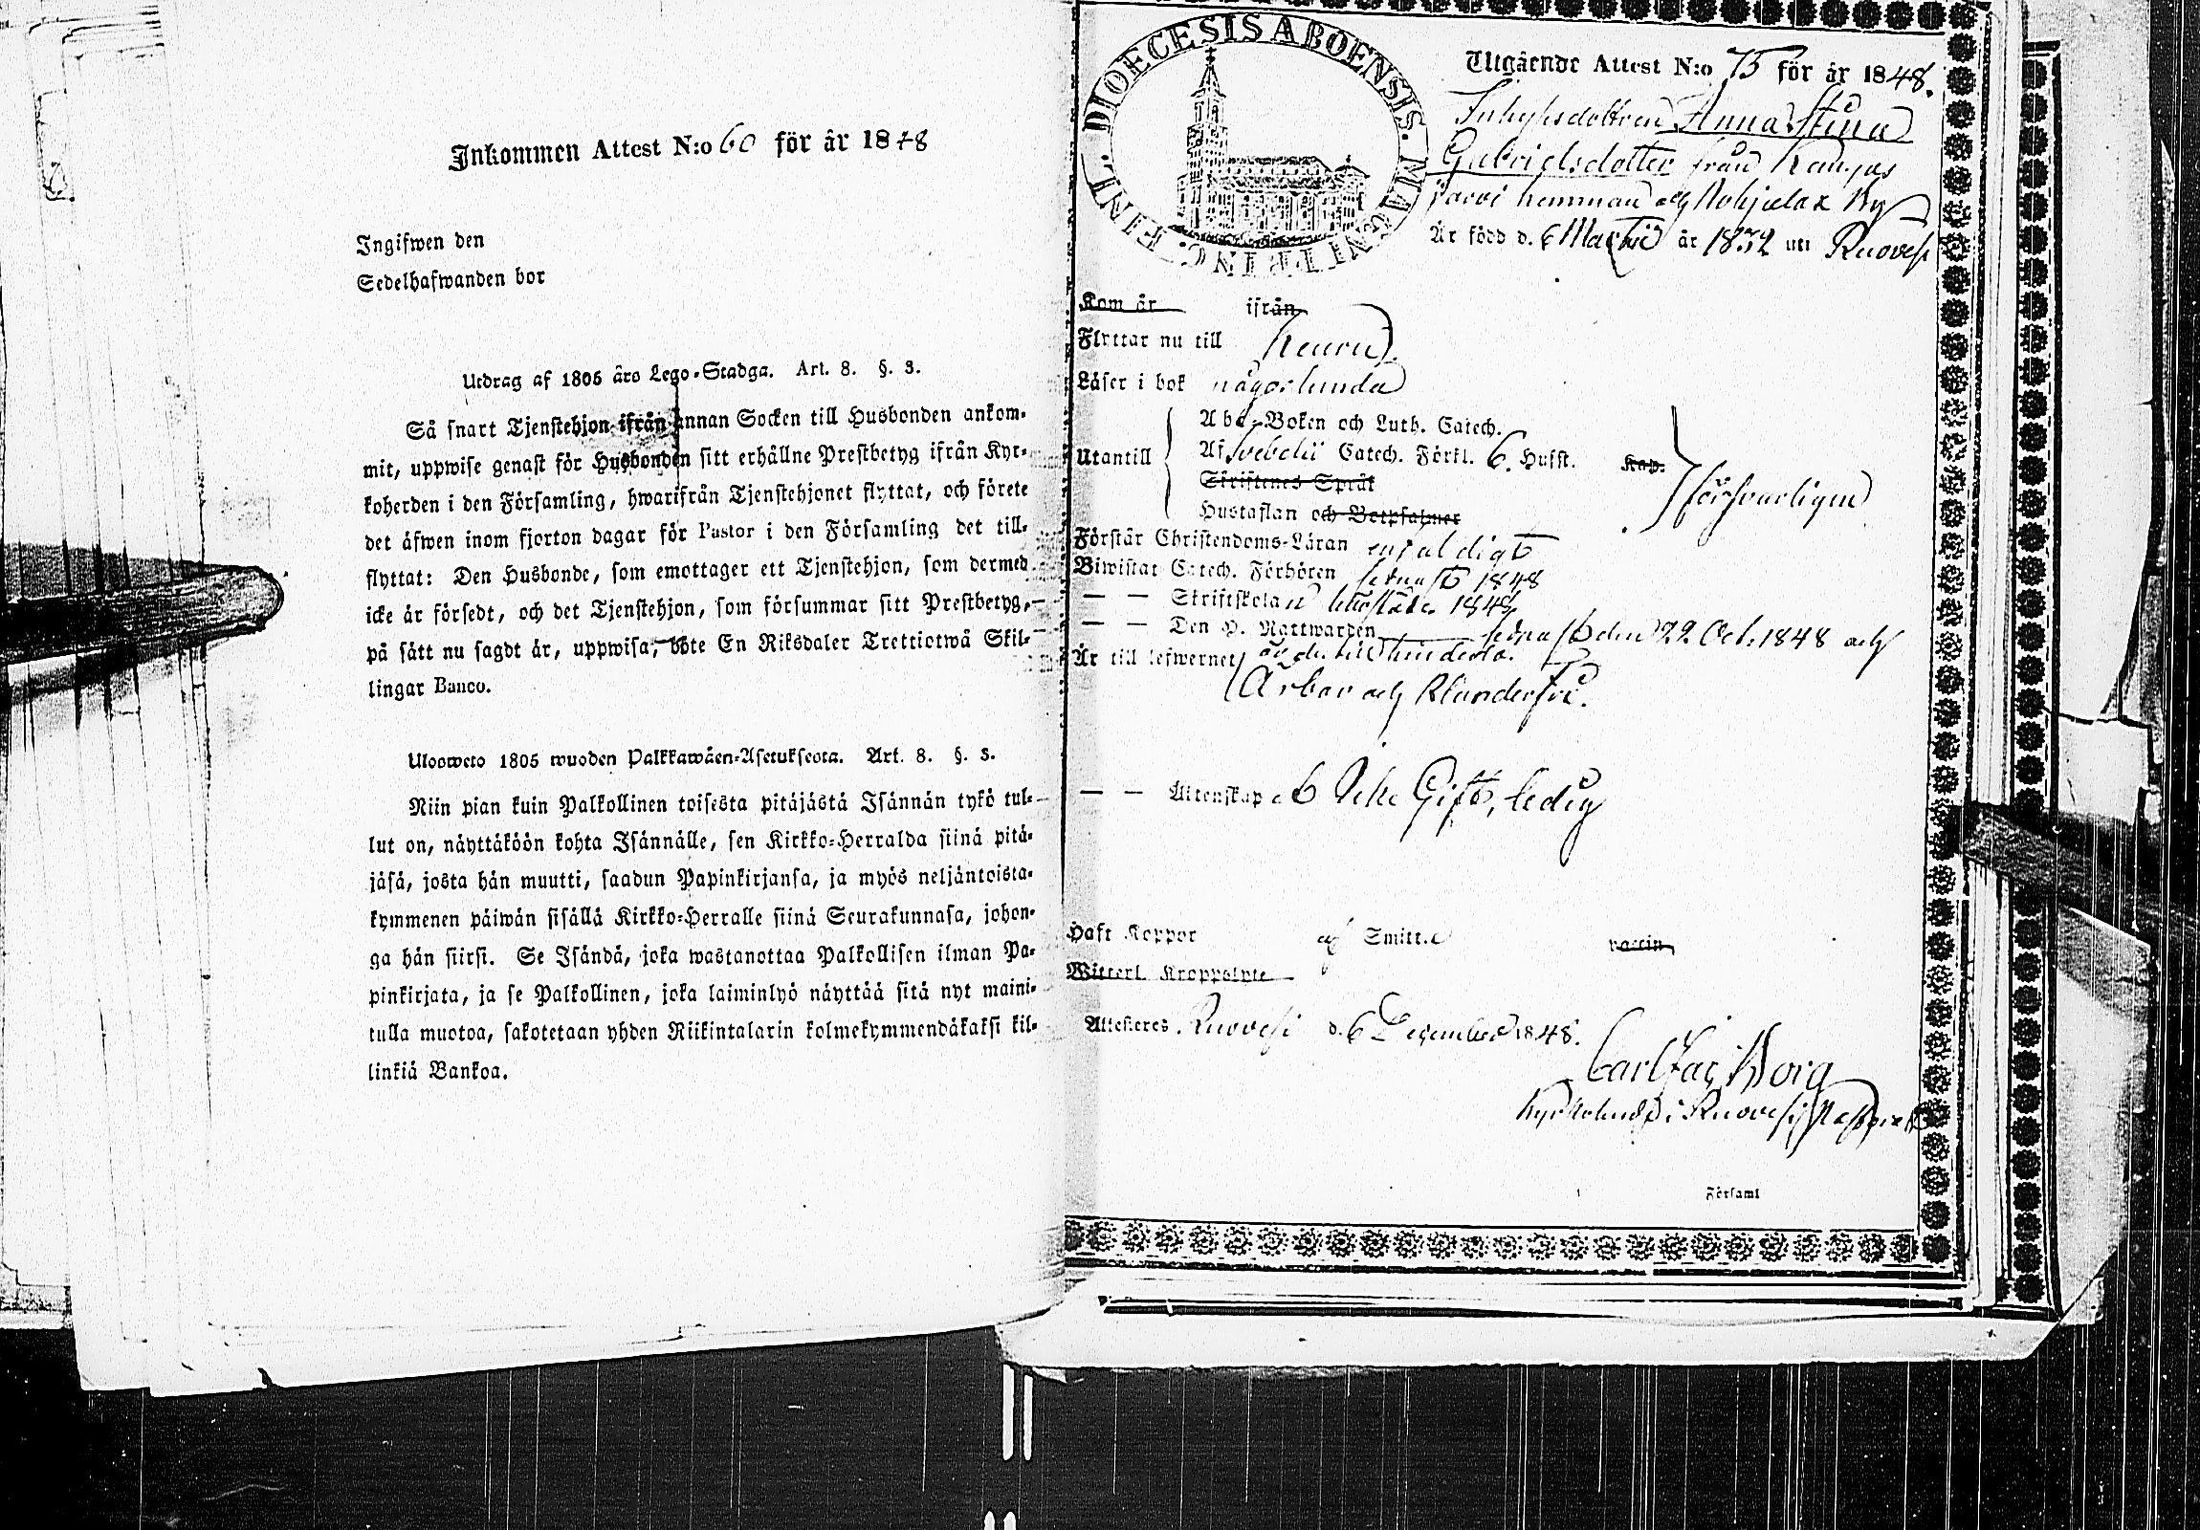 Inkommen Attest N:o 60 för år 1848
Ingifwen den
Sedelhafwanden bor
Utdrag af 1805 års Lego-Stadga. Art. 8. §. 3.
Så snart Tjenstehjon ifrån annan Socken till Husbonden ankom-
mit, uppwise genast för Husbonden sitt erhållne Prestbetyg ifrån Kyr-
koherden i den Församling, hwarifrån Tjenstehjonet flyttat, och förete
det äfwen inom fjorton dagar för Pastor i den Församling det till-
flyttat: Den Husbonde, som emottager ett Tjenstehjon, som dermed
icke är försedt, och det Tjenstehjon, som försummar sitt Prestbetyg,
på sätt nu sagdt är, uppwisa, böte En Riksdaler Trettiotwå Skil-
lingar Banco.
Ulosweto 1805 wuoden Palkkawäen-Asetuksesta. Art. 8. §. 3.
Niin pian kuin Palkollinen toisesta pitäjästä Isännän tykö tul-
lut on, näyttäköön kohta Isännälle, sen Kirkko-Herralda siinä pitä-
jäsä, josta hän muutti, saadun Papinkirjansa, ja myös neljäntoista-
kymmenen päiwän sisällä Kirkko-Herralle siinä Seurakunnasa, johon-
ga hän siirsi. Se Isändä, joka wastanottaa Palkollisen ilman Pa-
pinkirjata, ja se Palkollinen, joka laiminlyö näyttää sitä nyt maini-
tulla muotoa, sakotetaan yhden Riikintalarin kolmekymmendäkaksi kil-
linkiä Bankoa.
DIOECESIS ABOENSIS. MAGNI PRINC. FINL.
Utgående Attest N:o 75 för år 1848.
Inhysesdottren Anna Stina
Gabrielsdotter från
järvi hemman och By
Är född d. 6 Martii år 1832 uti Ruovesi
Kom år ifrån
Flyttar nu till Keuru
Läser i bok någorlunda
Utantill
Abc-Boken och Luth. Catech.
Af Svebelii Catech. Förkl. 6. Hufst. Kap.
Skriftenes Språk
Hustaflan och Botpsalmer
försvarligen
Förstår Christendoms-Läran enfaldigt
Biwistat Catech. Förhören sednast 1848
— — Skriftskolan 1848
— — Den H. Nattwarden sednast den 22 Oct. 1848 och
är du till hinderlös.
Är till lefwernet Ärbar och Klanderfri.
— — Äktenskap Icke Gift, ledig
Haft Koppor af Smitta vaccin
Witterl. Kroppslyte
Attesteras Ruovesi d. 6 December 1848.
Carl Jac. Borg
Kyrkoherde i Ruovesi
Församl